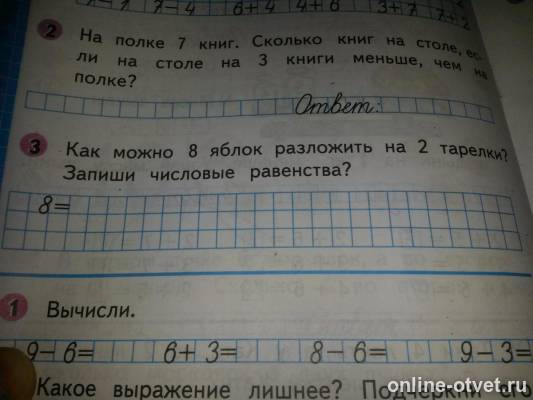 7-4 6+4 4+6 3+7 7+2
2 На полке 7 книг. Сколько книг на столе, ес-
ли на столе на 3 книги меньше, чем на
полке?
Ответ:
3 Как можно 8 яблок разложить на 2 тарелки?
Запиши числовые равенства?
8=
1 Вычисли.
9-6= 6+3= 8-6= 9-3=
Какое выражение лишнее? Подчеркни его
online-otvet.ru